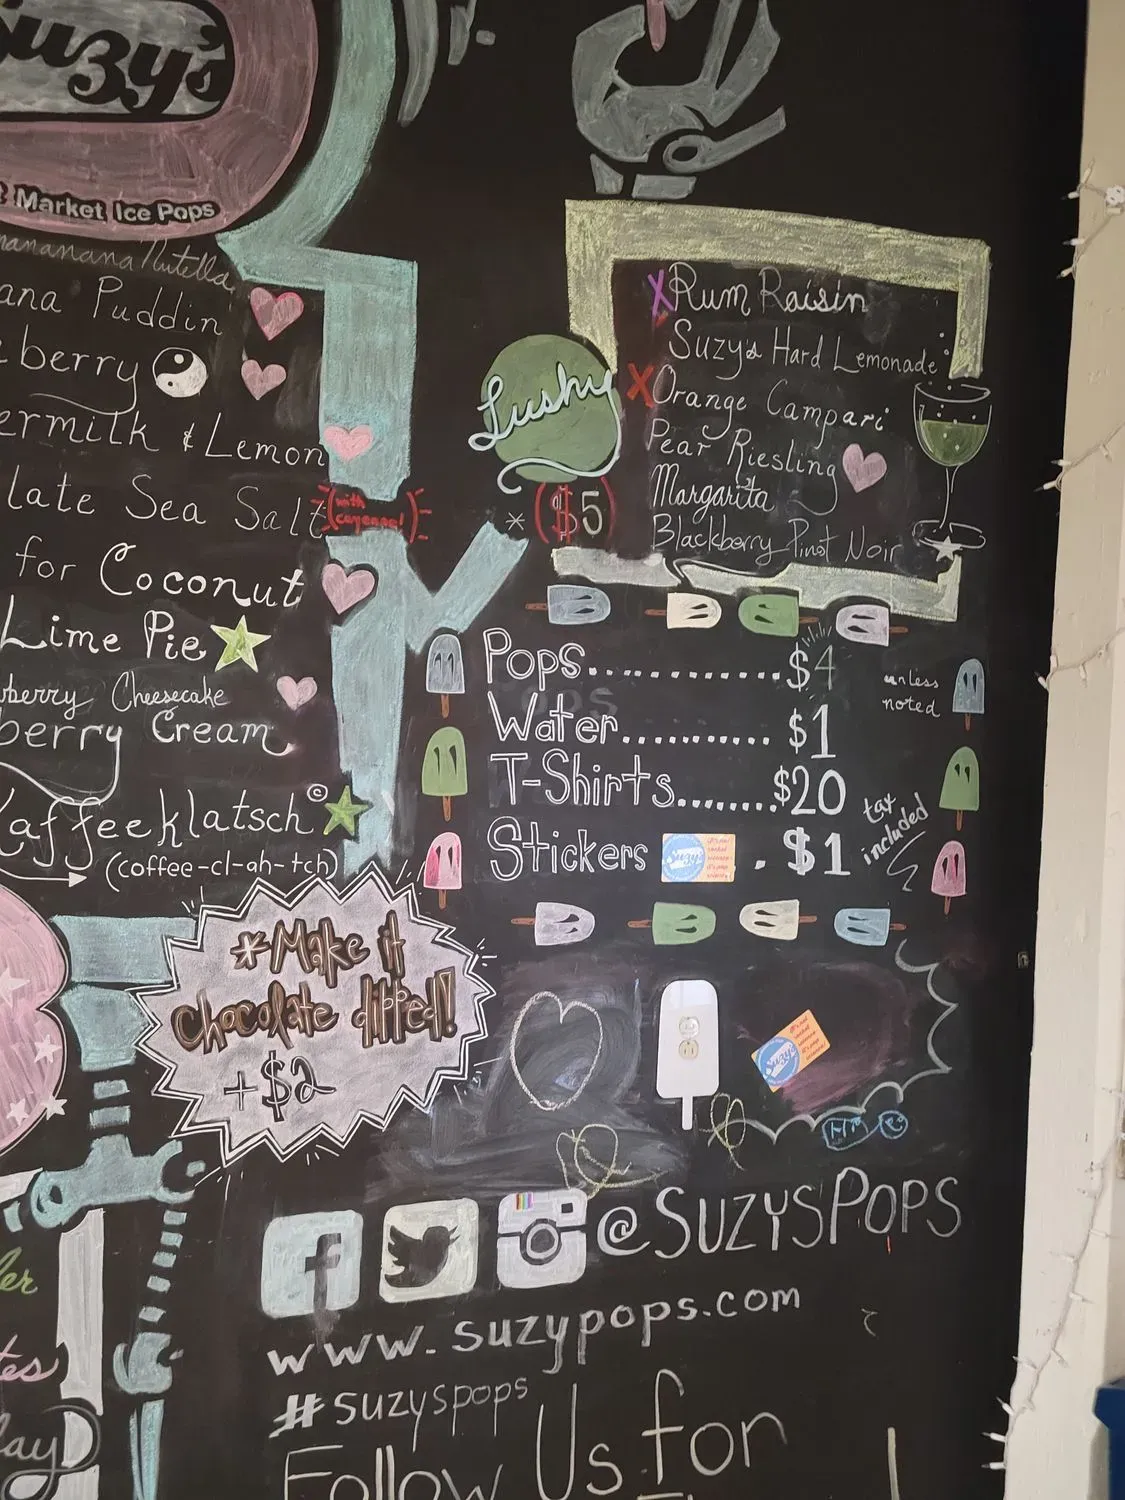 Suzy's
Market Ice Pops
nanananana Nutella
ana Puddin
berry
ermilk & Lemon
late Sea Salt (with cayenne!)
for Coconut
Lime Pie
berry Cheesecake
berry Cream
Kaffeeklatsch ©
(coffee-cl-ah-tch)
Lushy
* ($5)
X Rum Raisin
Suzy's Hard Lemonade
X Orange Campari
Pear Riesling
Margarita
Blackberry Pinot Noir
Pops..............$4 unless noted
Water........... $1
T-Shirts........$20
Stickers Suzy's . $1
tax included
*Make it
chocolate dipped!
+$2
@SuzysPops
www.suzypops.com
#suzyspops
Follow Us for
ler
tes
day